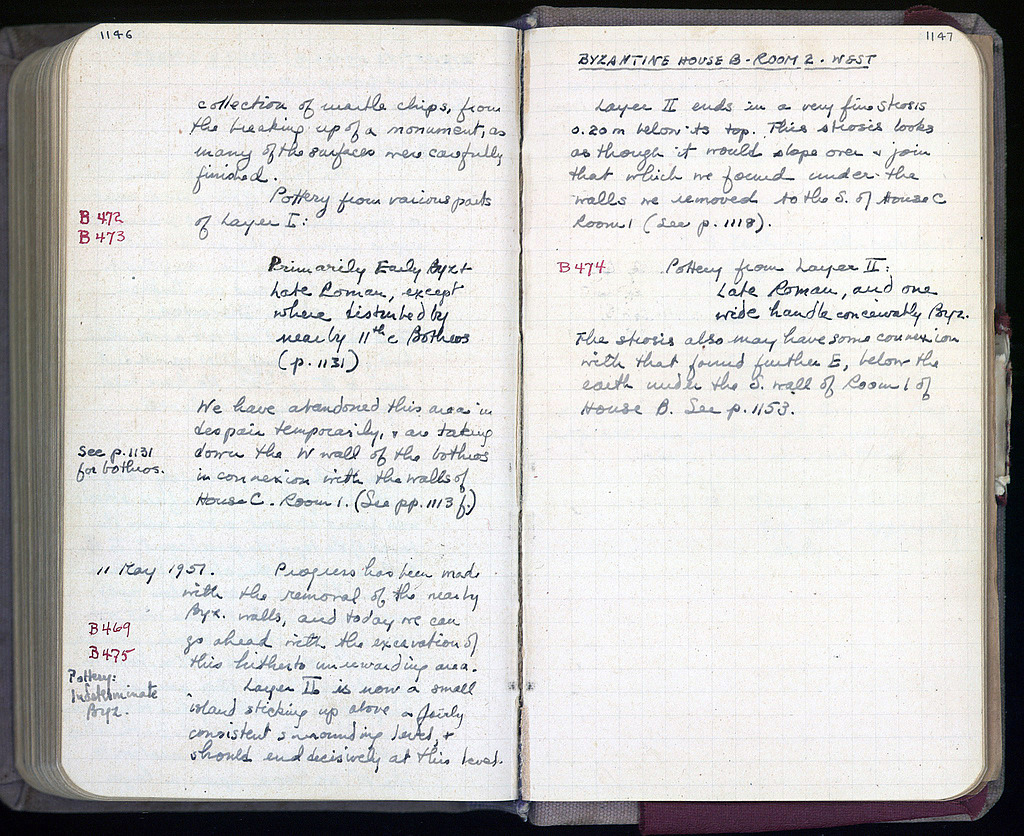 1146
collection of marble chips, from
the breaking up of a monument, as
many of the surfaces were carefully
finished.
Pottery from various parts
B 472
of Layer I:
B 473
Primarily Early Byz +
Late Roman, except
where disturbed by
nearby 11th c Bothros
(p. 1131)
We have abandoned this area in
despair temporarily, + are taking
See p. 1131
down the W wall of the bothros
for bothros.
in connexion with the walls of
House C. Room 1. (See pp. 1113 f.)
11 May 1957. Progress has been made
with the removal of the nearby
Byz. walls, and today we can
B 469
go ahead with the excavation of
B 475
this hitherto unrewarding area.
Pottery:
Indeterminate
Byz.
Layer II is now a small
island sticking up above a fairly
consistent surrounding level, +
should end decisively at this level.
1147
BYZANTINE HOUSE B - ROOM 2 - WEST
Layer II ends in a very fine strosis
0.20 m below its top. This strosis looks
as though it would slope over + join
that which we found under the
walls we removed to the S. of House C
Room 1 (see p. 1118).
B 474 Pottery from Layer II:
Late Roman, and one
wide handle conceivably Byz.
The strosis also may have some connexion
with that found further E, below the
earth under the S. wall of Room 1 of
House B. See p. 1153.